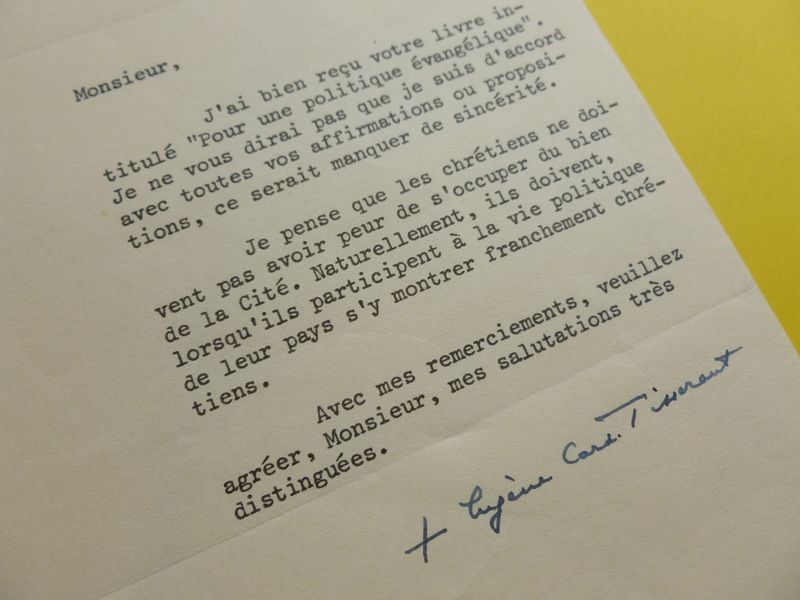 Monsieur,
J'ai bien reçu votre livre in-
titulé "Pour une politique évangélique".
Je ne vous dirai pas que je suis d'accord
avec toutes vos affirmations ou proposi-
tions, ce serait manquer de sincérité.
Je pense que les chrétiens ne doi-
vent pas avoir peur de s'occuper du bien
de la Cité. Naturellement, ils doivent,
lorsqu'ils participent à la vie politique
de leur pays s'y montrer franchement chré-
tiens.
Avec mes remerciements, veuillez
agréer, Monsieur, mes salutations très
distinguées.
+ Eugène Card. Tisserant